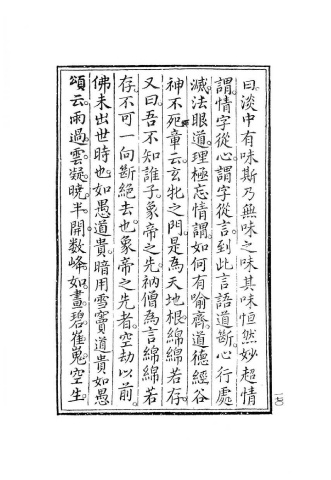 曰淡中有味斯乃無味之味其味恒然妙超情
謂情字從心謂字從言到此言語道斷心行處
滅法眼道理極忘情謂如何有喻齊道德經谷
神不死章云玄牝之門是為天地根綿綿若存
又曰吾不知誰子象帝之先衲僧為言綿綿若
存不可一向斷絕去也象帝之先者空劫以前
佛未出世時也如愚道貴暗用雪竇道貴如愚
頌云雨過雲凝曉半開數峰如畫碧崔嵬空生